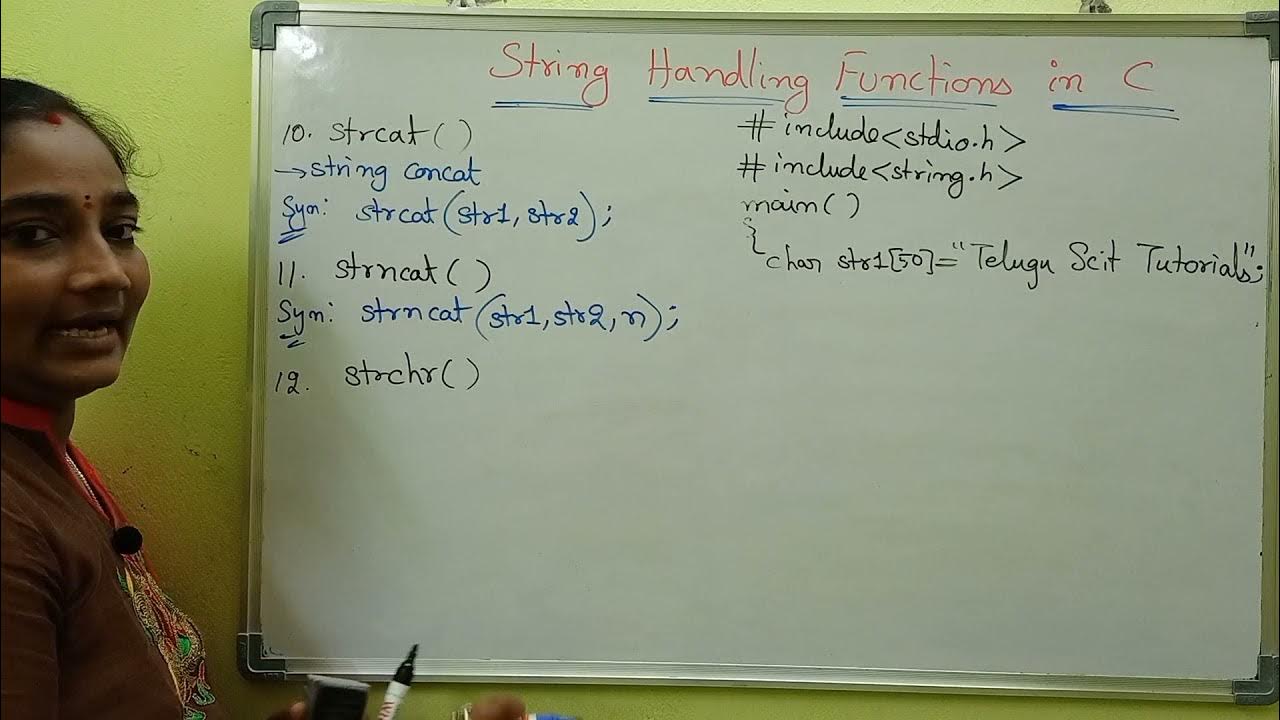 String Handling Functions in C
10. strcat()
→string concat
Syn: strcat(str1, str2);
11. strncat()
Syn: strncat(str1, str2, n);
12. strchr()
#include<stdio.h>
#include<string.h>
main()
{
char str1[50]="Telugu Scit Tutorials";